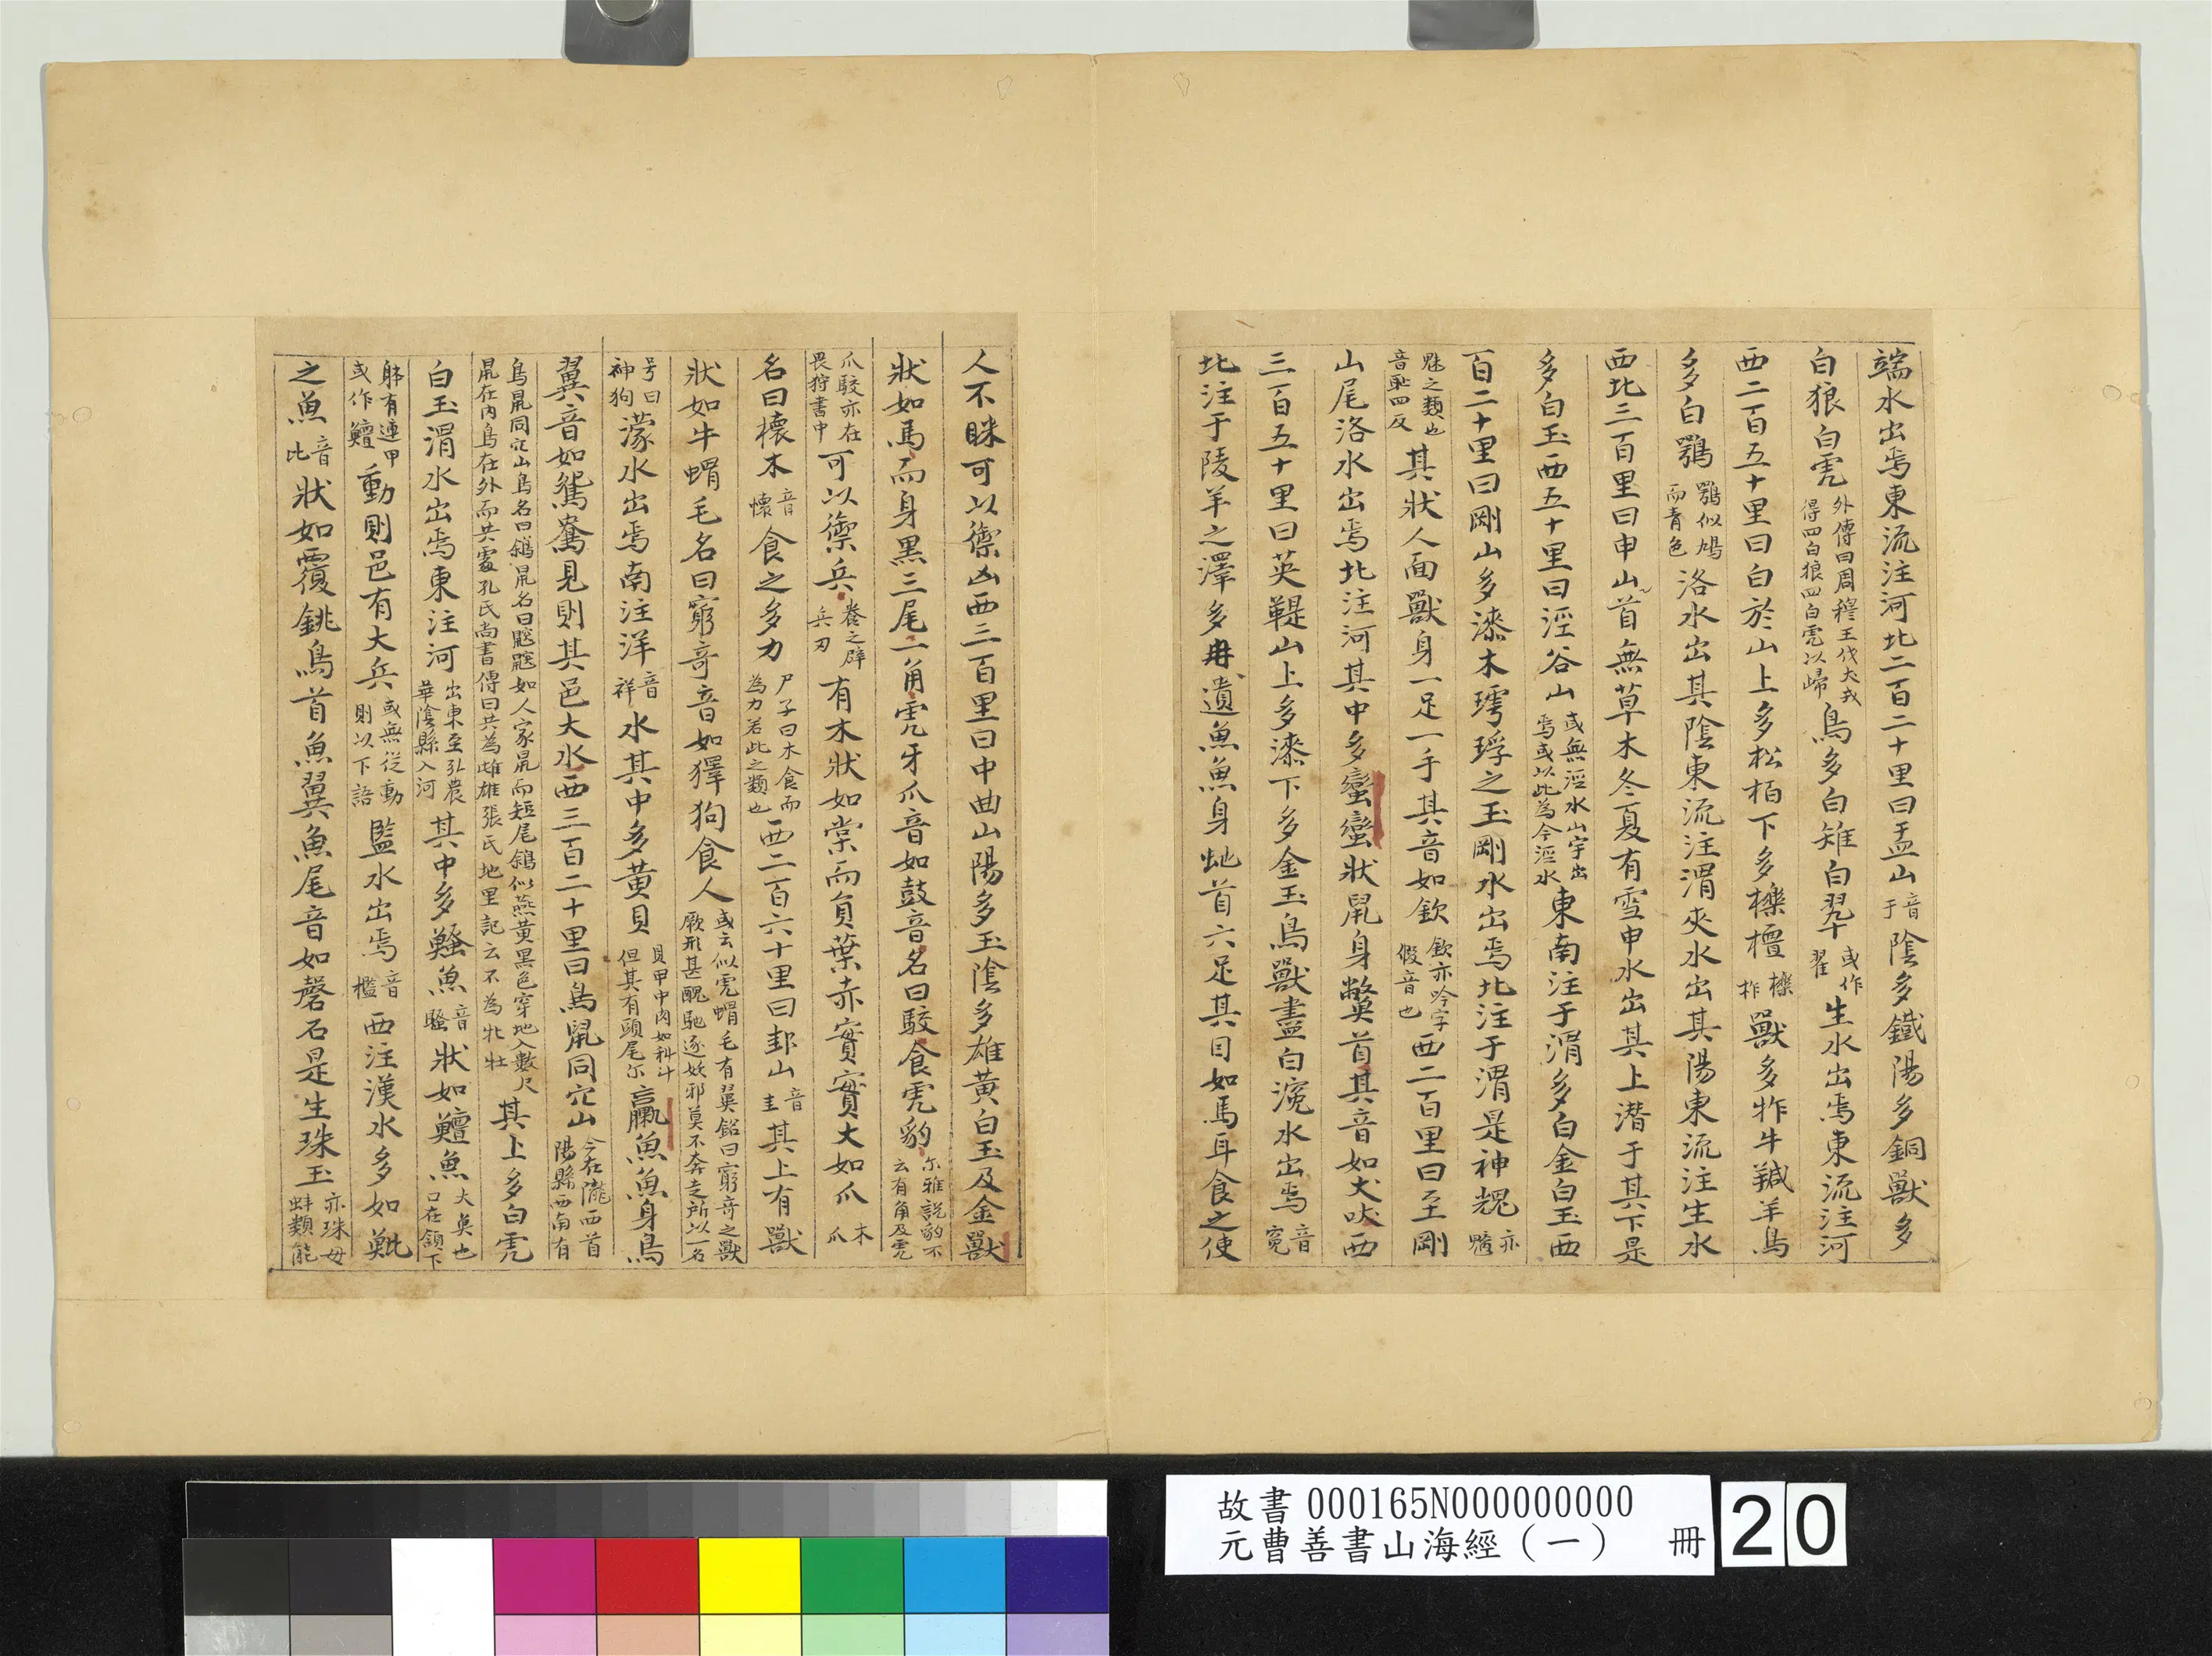 端水出焉東流注河北二百二十里曰盂山音于陰多鐵陽多銅獸多
白狼白虎外傳曰周穆王伐犬戎得四白狼四白虎以歸鳥多白雉白翠或作翟生水出焉東流注河
西二百五十里曰白於山上多松栢下多櫟檀櫟柞獸多㸲牛羬羊鳥
多白鶚鶚似鳩而青色洛水出其陰東流注渭夾水出其陽東流注生水
西北三百里曰申山首無草木冬夏有雪申水出其上潛于其下是
多白玉西五十里曰涇谷山或無涇水山字出焉或以此為今涇水東南注于渭多白金白玉西
百二十里曰剛山多漆木㻬琈之玉剛水出焉北注于渭是神䰠亦魑
魅之類也音恥四反其狀人面獸身一足一手其音如欽欽亦吟字假音也西二百里曰至剛
山尾洛水出焉北注河其中多蠻蠻狀鼠身鼈首其音如犬吠西
三百五十里曰英鞮山上多漆下多金玉鳥獸盡白涴水出焉音寃
北注于陵羊之澤多冉遺魚魚身虵首六足其目如馬耳食之使
人不眯可以禦凶西三百里曰中曲山陽多玉陰多雄黃白玉及金獸
狀如馬而身黑三尾一角虎牙爪音如鼓音名曰駮食虎豹尔雅說豹不云有角及虎
爪駮亦在畏狩書中可以禦兵養之辟兵刃有木狀如棠而負葉赤實實大如爪木爪
名曰櫰木音懷食之多力尸子曰木食而為力若此之類也西二百六十里曰邽山音圭其上有獸
狀如牛蝟毛名曰窮奇音如獆狗食人或云似虎蝟毛有翼銘曰窮奇之獸厥形甚醜馳逐妖邪莫不奔走所以一名
号曰神狗濛水出焉南注洋音祥水其中多黃貝貝甲中肉如科斗但其有頭尾尔蠃魚魚身鳥
翼音如鴛鶱見則其邑大水西三百二十里曰鳥鼠同穴山今在隴西首陽縣西南有
鳥鼠同穴山鳥名曰鵌鼠名曰鼵鼵如人家鼠而短尾鵌似燕黃黑色穿地入數尺鼠在內鳥在外而共處孔氏尚書傳曰共為雌雄張氏地里記云不為牝牡其上多白虎
白玉渭水出焉東注河出東至弘農華陰縣入河其中多鰠魚音騷狀如鱣魚大魚也口在頷下
躰有連甲或作鱣動則邑有大兵或無從動則以下語監水出焉音檻西注漢水多如魮
之魚音比狀如覆銚鳥首魚翼魚尾音如磬石是生珠玉亦珠母蚌類能
故書000165N000000000
元曹善書山海經（一） 冊
20